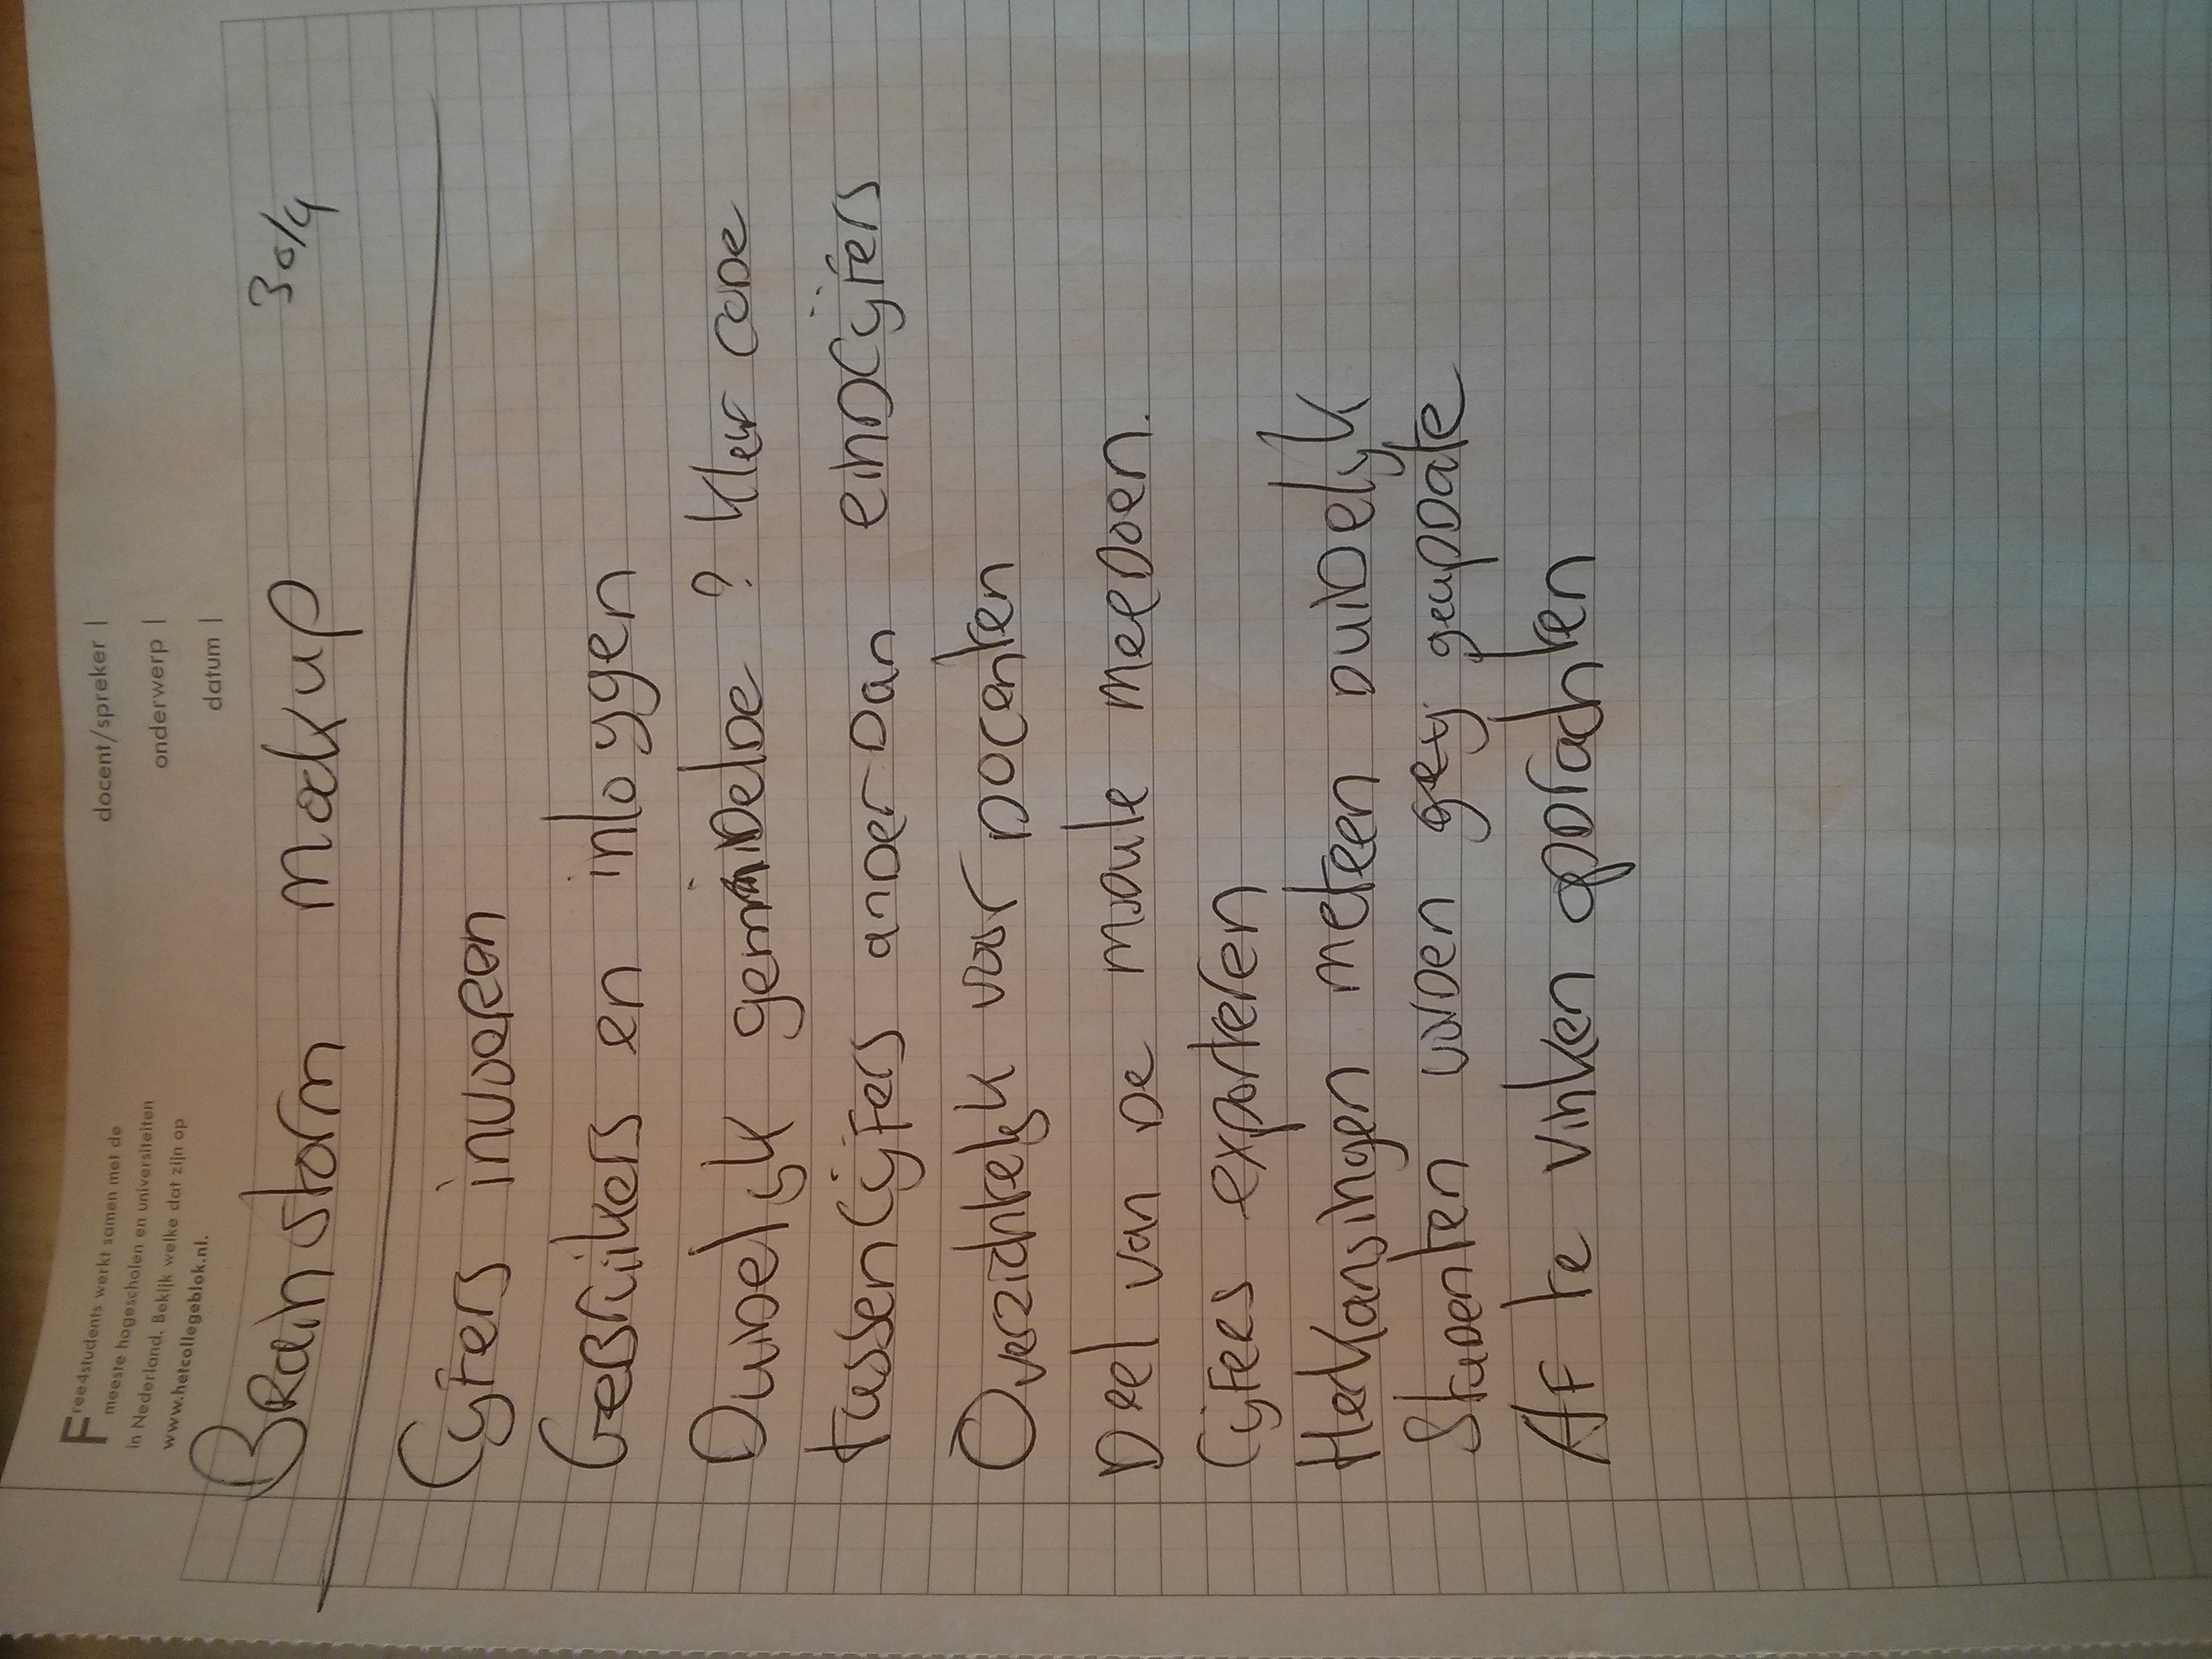 Free4students werkt samen met de
meeste hogescholen en universiteiten
in Nederland. Bekijk welke dat zijn op
www.hetcollegeblok.nl.
docent/spreker |
onderwerp |
datum |
Brainstorm mockup 30/4
Cyfers invoeren
Gebruikers en inloggen
Duidelyk gemiddelde ? kleur code
tussencijfers ander dan eindcijfers
Overzichtelyk voor docenten
Deel van de module meedoen.
Cyfers exporteren
Herkansingen meteen duidelyk
Studenten worden geupdate
Af te vinken opdrachten